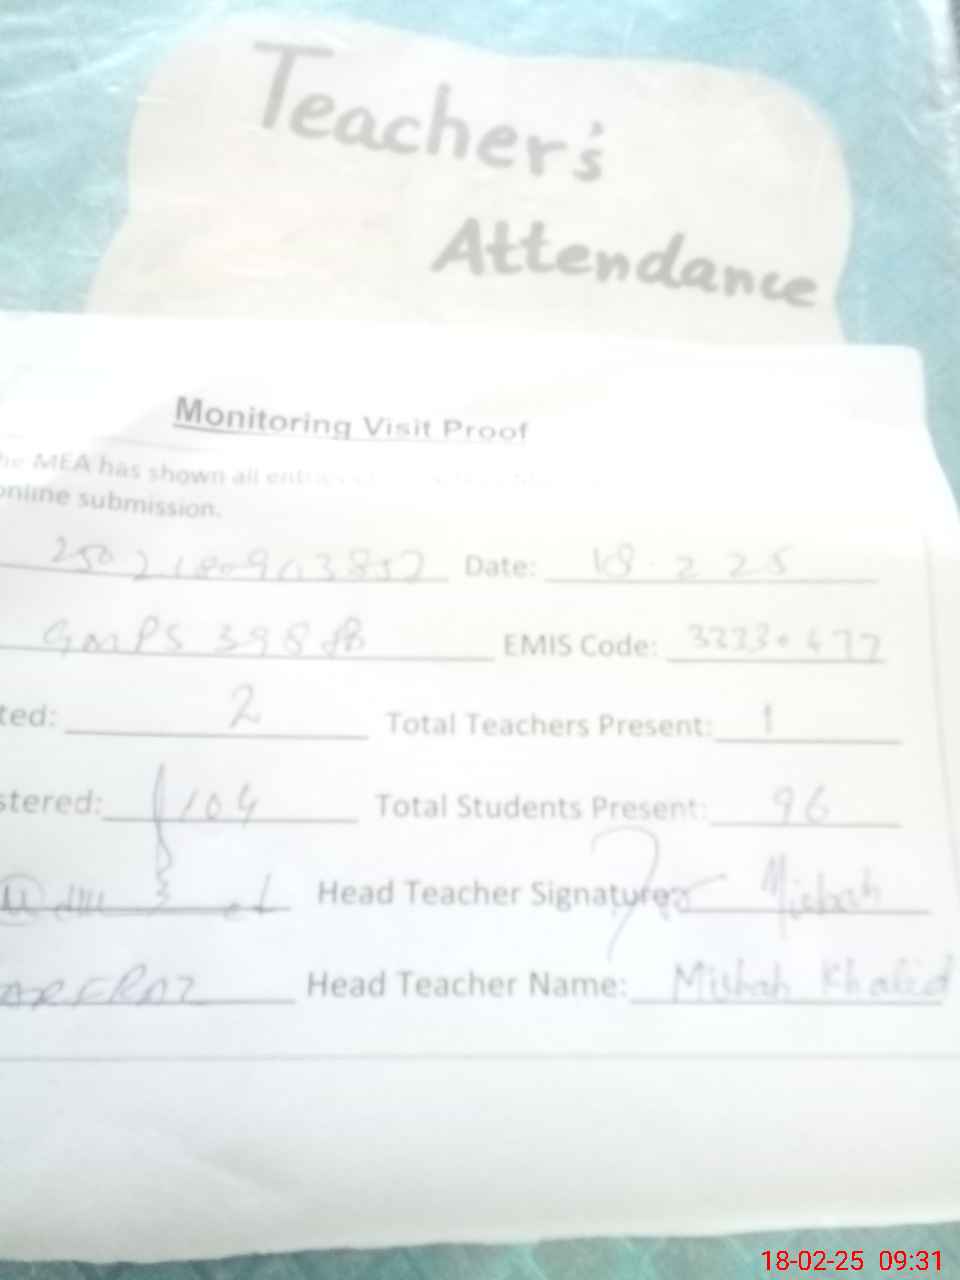 Teacher's
Attendance
Monitoring Visit Proof
he MEA has shown all
online submission.
Date: 18.2 25
GMPS 398
EMIS Code:
ted: 2 Total Teachers Present: 1
stered: 104 Total Students Present: 96
Head Teacher Signature: Misbah
Head Teacher Name: Misbah Khalid
18-02-25 09:31